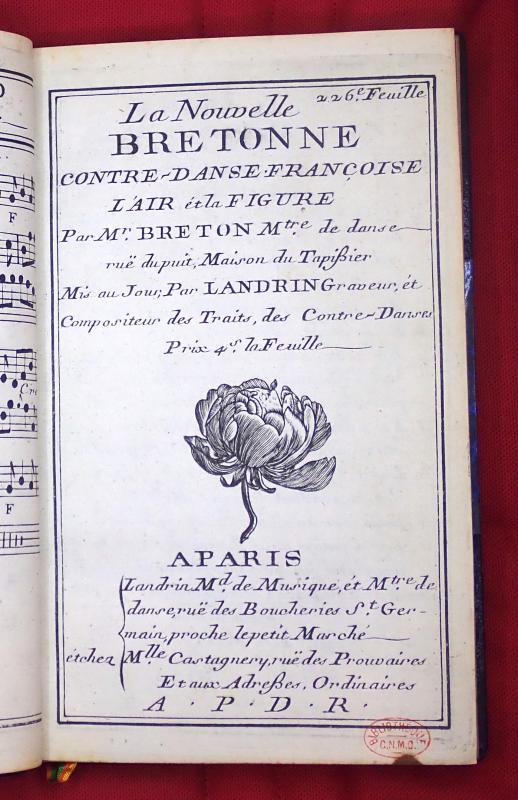 226.e Feuille
La Nouvelle
BRETONNE
CONTRE-DANSE FRANÇOISE
L'AIR ét la FIGURE
Par Mr. BRETON Mtre. de danse
ruë du puit, Maison du Tapißier
Mis au Jour, Par LANDRIN Graveur, ét
Compositeur des Traits, des Contre-Danses
Prix 4s. la Feuille
A PARIS
Landrin Md. de Musique, ét Mtre de
danse, ruë des Boucheries St. Ger-
main, proche le petit Marché
ét chez Mlle Castagnery, ruë des Prouvaires
Et aux Adreßes, Ordinaires
A. P. D. R.
BIBLIOTHÈQUE
C.N.M.D.
F
F